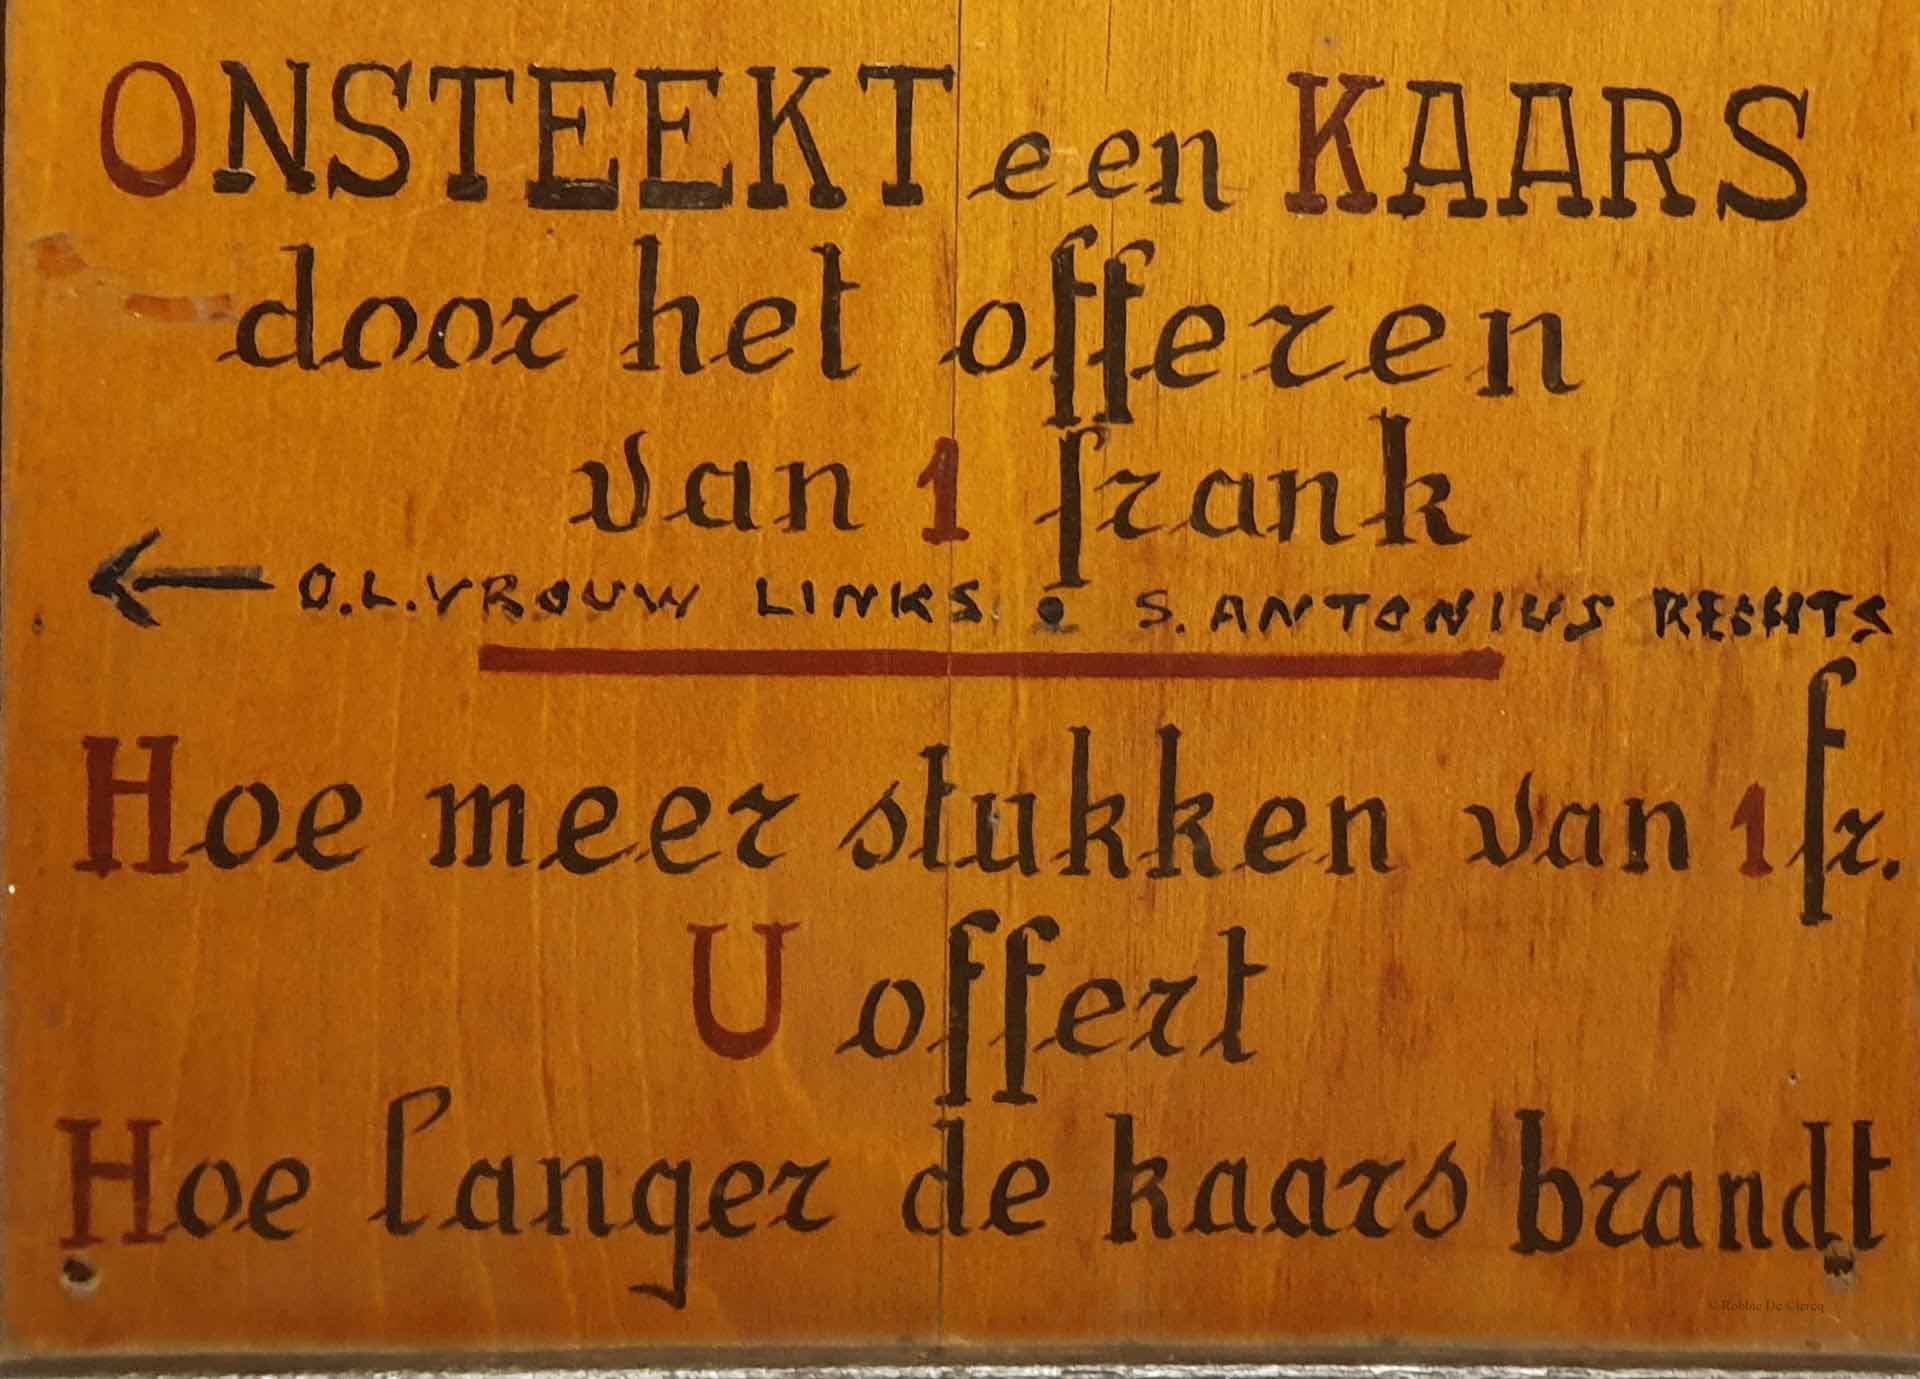 ONSTEEKT een KAARS
door het offeren
van 1 frank
← O.L.VROUW LINKS. • S. ANTONIUS RECHTS
Hoe meer stukken van 1 fr.
U offert
Hoe langer de kaars brandt
© Robine De Clercq